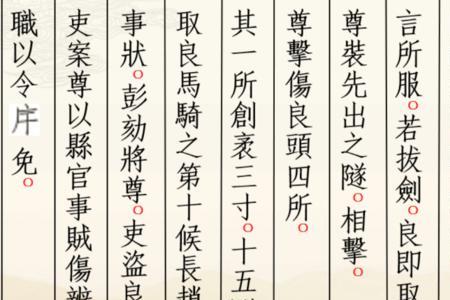 言所服。若拔劍。良即取
尊裝先出之隧。相擊。
尊擊傷良頭四所。
其一所創袤三寸。十五
取良馬騎之第十候長趙
事狀。彭劾將尊。吏盜良
吏案尊以縣官事賊傷辨
職以令免。